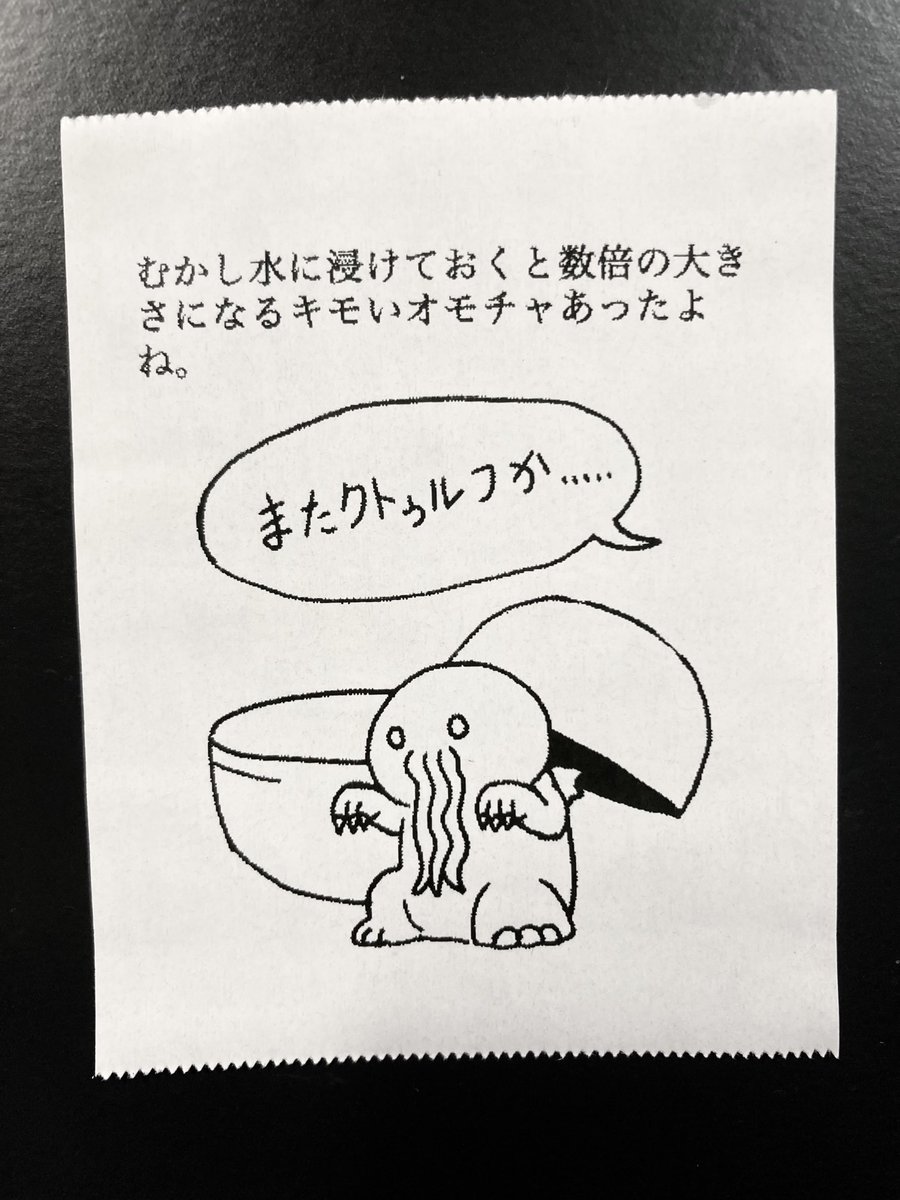 むかし水に浸けておくと数倍の大き
さになるキモいオモチャあったよ
ね。
またクトゥルフか.....